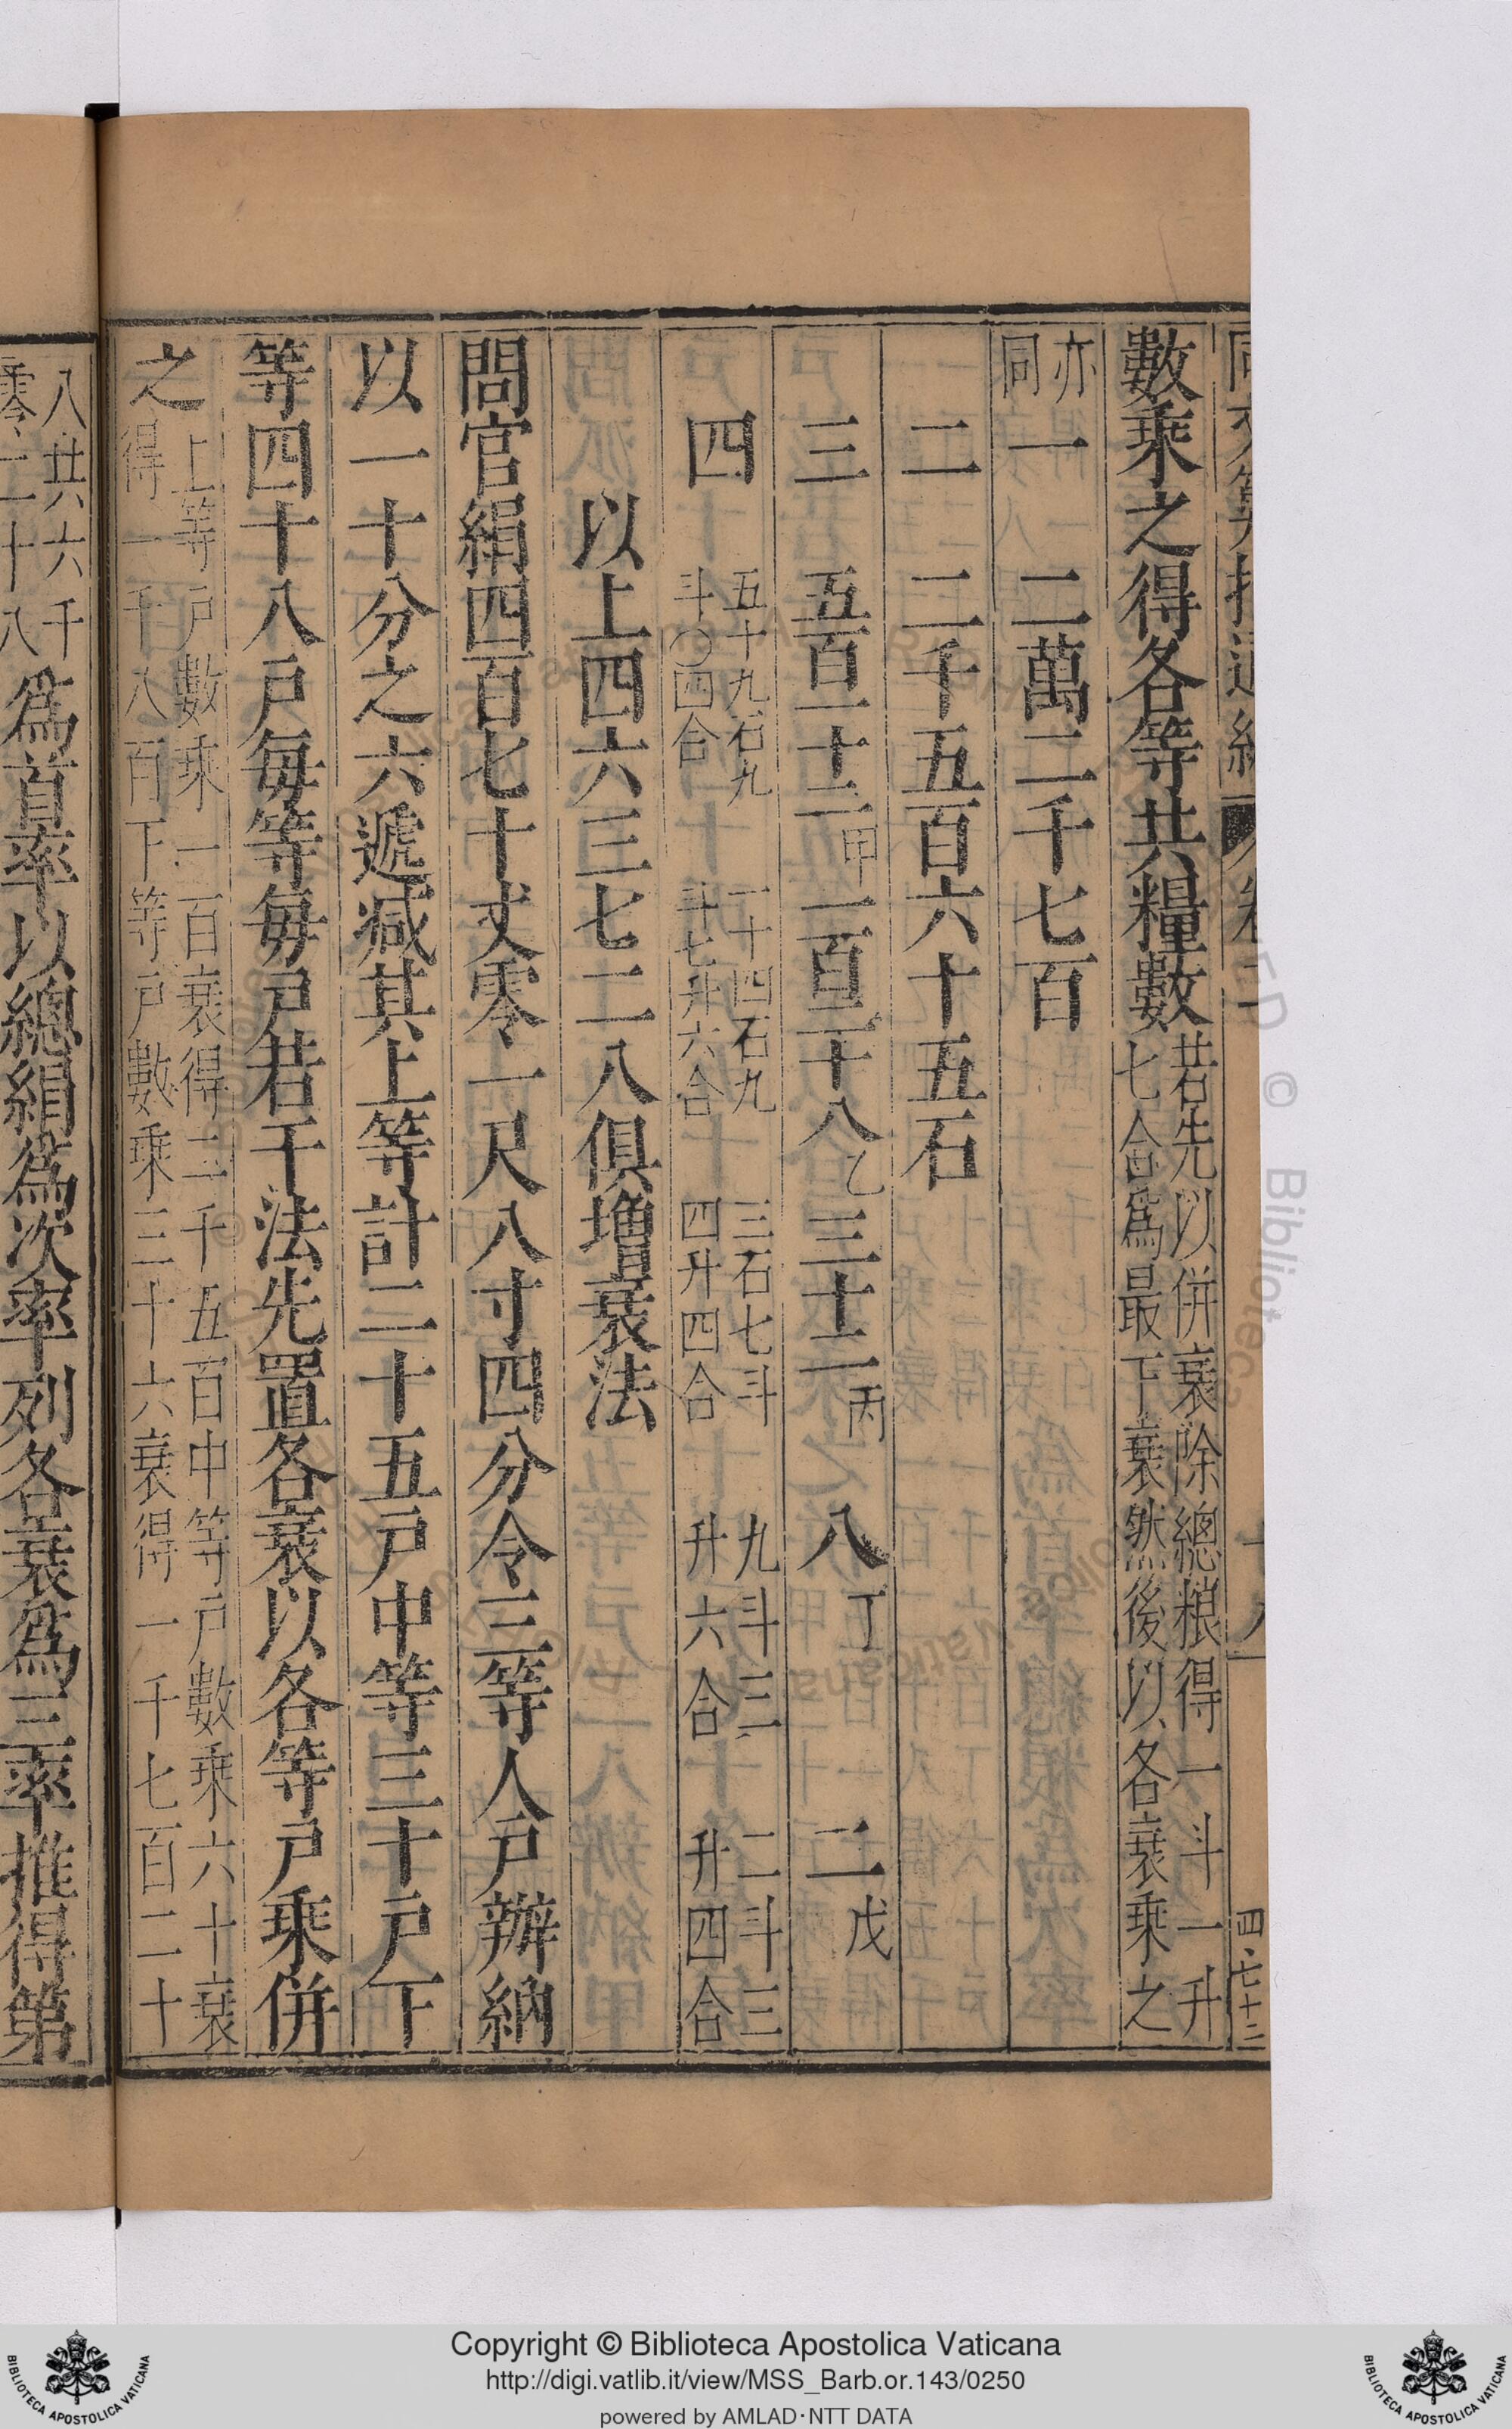 數乘之得各等共糧數若先以併衰除總粮得一斗一升七合爲最下衰然後以各衰乘之
亦同 一 二萬二千七百
二 二千五百六十五石
三 五百一十二甲 一百二十八乙 三十二丙 八丁 二戊
四 五十九石九斗〇四合 一十四石九斗七升六合 三石七斗四升四合 九斗三升六合 二斗三升四合
以上四六三七二八俱增衰法
問官絹四百七十丈零一尺八寸四分令三等人戶辦納
以一十分之六遞减其上等計二十五戶中等三十戶下
等四十八戶每等每戶若干法先置各衰以各等戶乘併
之上等戶數乘一百衰得二千五百中等戶數乘六十衰得一千八百下等戶數乘三十六衰得一千七百二十
八共六千零二十八爲首率以總絹爲次率列各衰爲三率推得第
四·七十三
Copyright © Biblioteca Apostolica Vaticana
http://digi.vatlib.it/view/MSS_Barb.or.143/0250
powered by AMLAD·NTT DATA
BIBLIOTECA APOSTOLICA VATICANA
BIBLIOTECA APOSTOLICA VATICANA